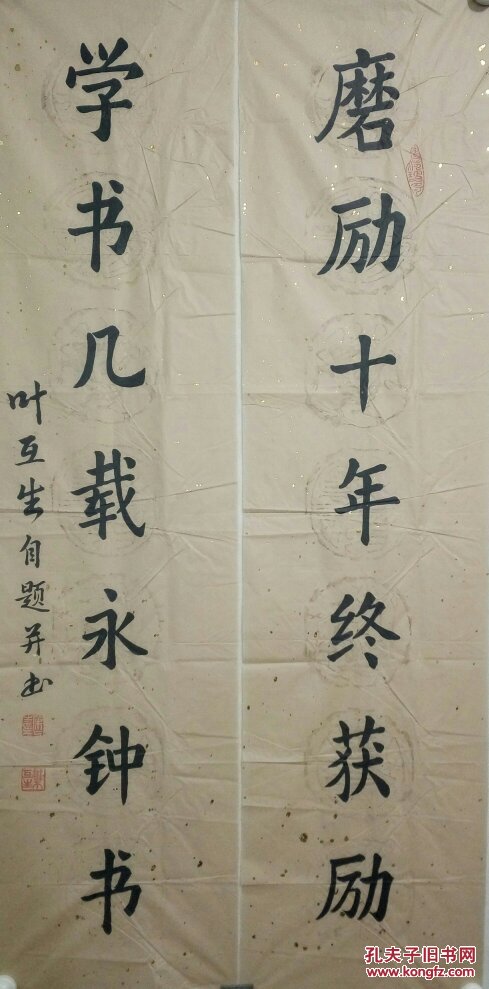 磨励十年终获励
学书几载永钟书
叶互生自题并书
孔夫子旧书网
www.kongfz.com